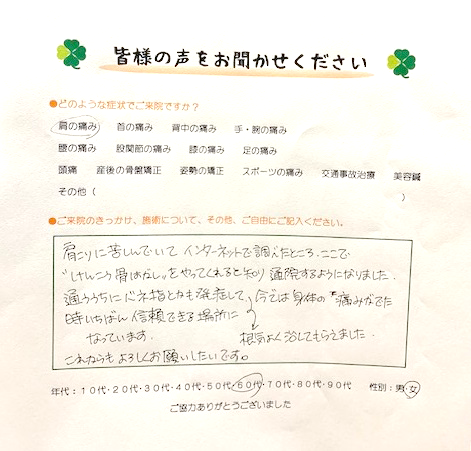 皆様の声をお聞かせください
●どのような症状でご来院ですか？
肩の痛み　首の痛み　背中の痛み　手・腕の痛み
腰の痛み　股関節の痛み　膝の痛み　足の痛み
頭痛　産後の骨盤矯正　姿勢の矯正　スポーツの痛み　交通事故治療　美容鍼
その他（　　）
●ご来院のきっかけ、施術について、その他、ご自由にご記入ください。
肩こりに苦しんでいて インターネットで調べたところ、ここで
"けんこう骨はがし"をやってくれると知り 通院するようになりました.
通ううちにバネ指とかも発症して、今では身体の"痛みがでた
時いちばん信頼できる場所に
なっています.
根気よく治してもらえました.
これからも よろしくお願いしたいです。
年代：10代・20代・30代・40代・50代・60代・70代・80代・90代　性別：男・女
ご協力ありがとうございました